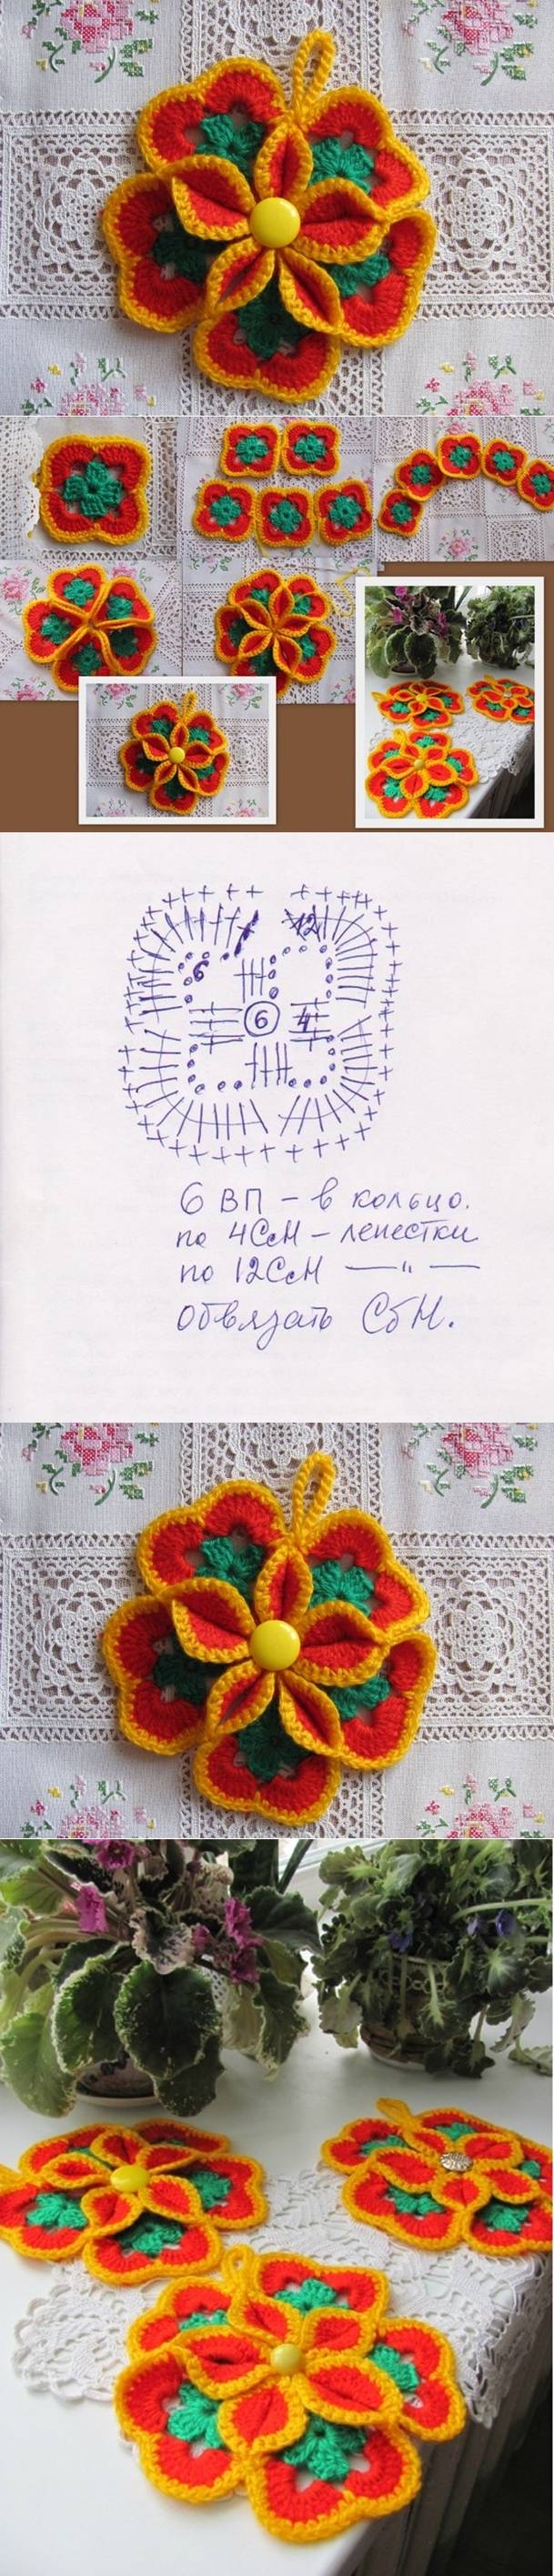 12
6
6 4
6 ВП – в кольцо.
по 4СсН – лепестки
по 12СсН —— " ——
обвязать СбН.